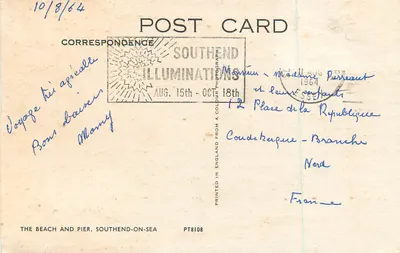 10/8/64
POST CARD
CORRESPONDENCE
SOUTHEND
ILLUMINATIONS
AUG. 15th - OCT. 18th
1964
Voyage très agréable
Bons baisers
Mamy
Monsieur - Madame Perreaut
et leurs enfants
12 Place de la République
Coudekerque - Branche
Nord
France
PRINTED IN ENGLAND FROM A COLOUR
THE BEACH AND PIER, SOUTHEND-ON-SEA
PT8108